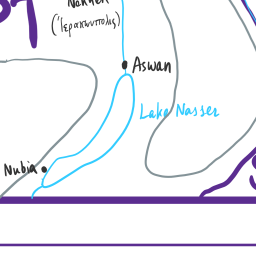 (Ἱερακωνπολις)
Aswan
Lake Nasser
Nubia